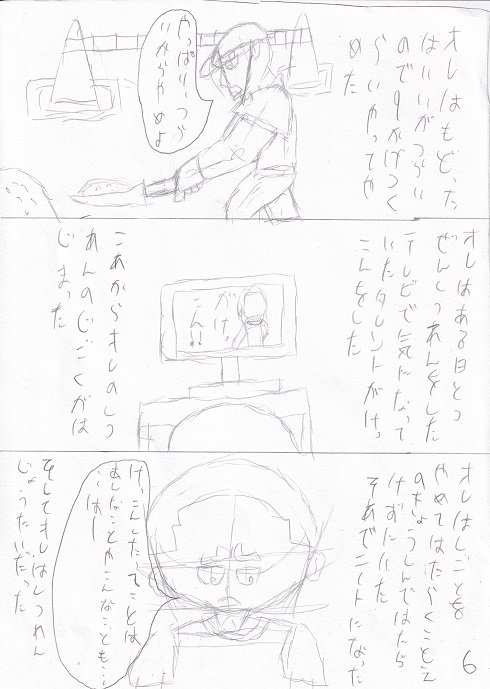 オレはもどった
はいいがつらい
ので9かげつく
らいやってや
めた
やっぱりつら
いからやめよ
オレはある日とつ
ぜんしつれんをした
テレビで気になって
いたタレントがけっ
こんをした
がけっ
こん!!
こあからオレのしつ
れんのじごくがは
じまった
オレはしごとを
やめてはたらくことえ
のきょうしんではたら
けずにいた
そあでニートになった
けっこんしたてことは
あんなことやこんなことも…
…はぁー
そしてオレはしつれん
じょうたいだった
6